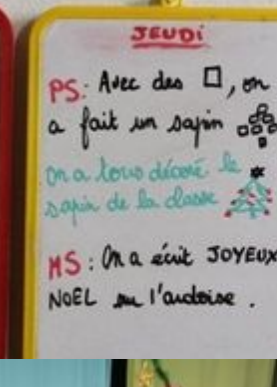 JEUDi
PS: Avec des □, on
a fait un sapin
on a tous décoré le
sapin de la classe
MS: On a écrit JOYEUX
NOEL sur l'ardoise.